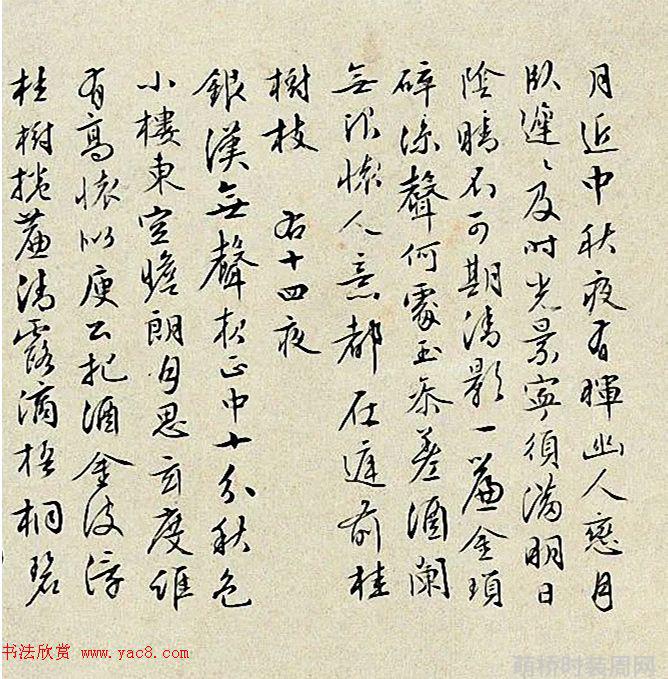 月近中秋夜有暉幽人戀月
臥遲〻及时光景寧須滿明日
陰晴不可期清影一簾金瑣
碎涼聲何處玉參差酒闌
無限懷人意都在庭前桂
樹枝 右十四夜
銀漢無聲正中十分秋色
小樓東空瞻朗月思玄度誰
有高懷似庾公把酒金波浮
桂樹捲簾清露滴梧桐碧
书法欣赏 www.yac8.com
萌桥时装周网